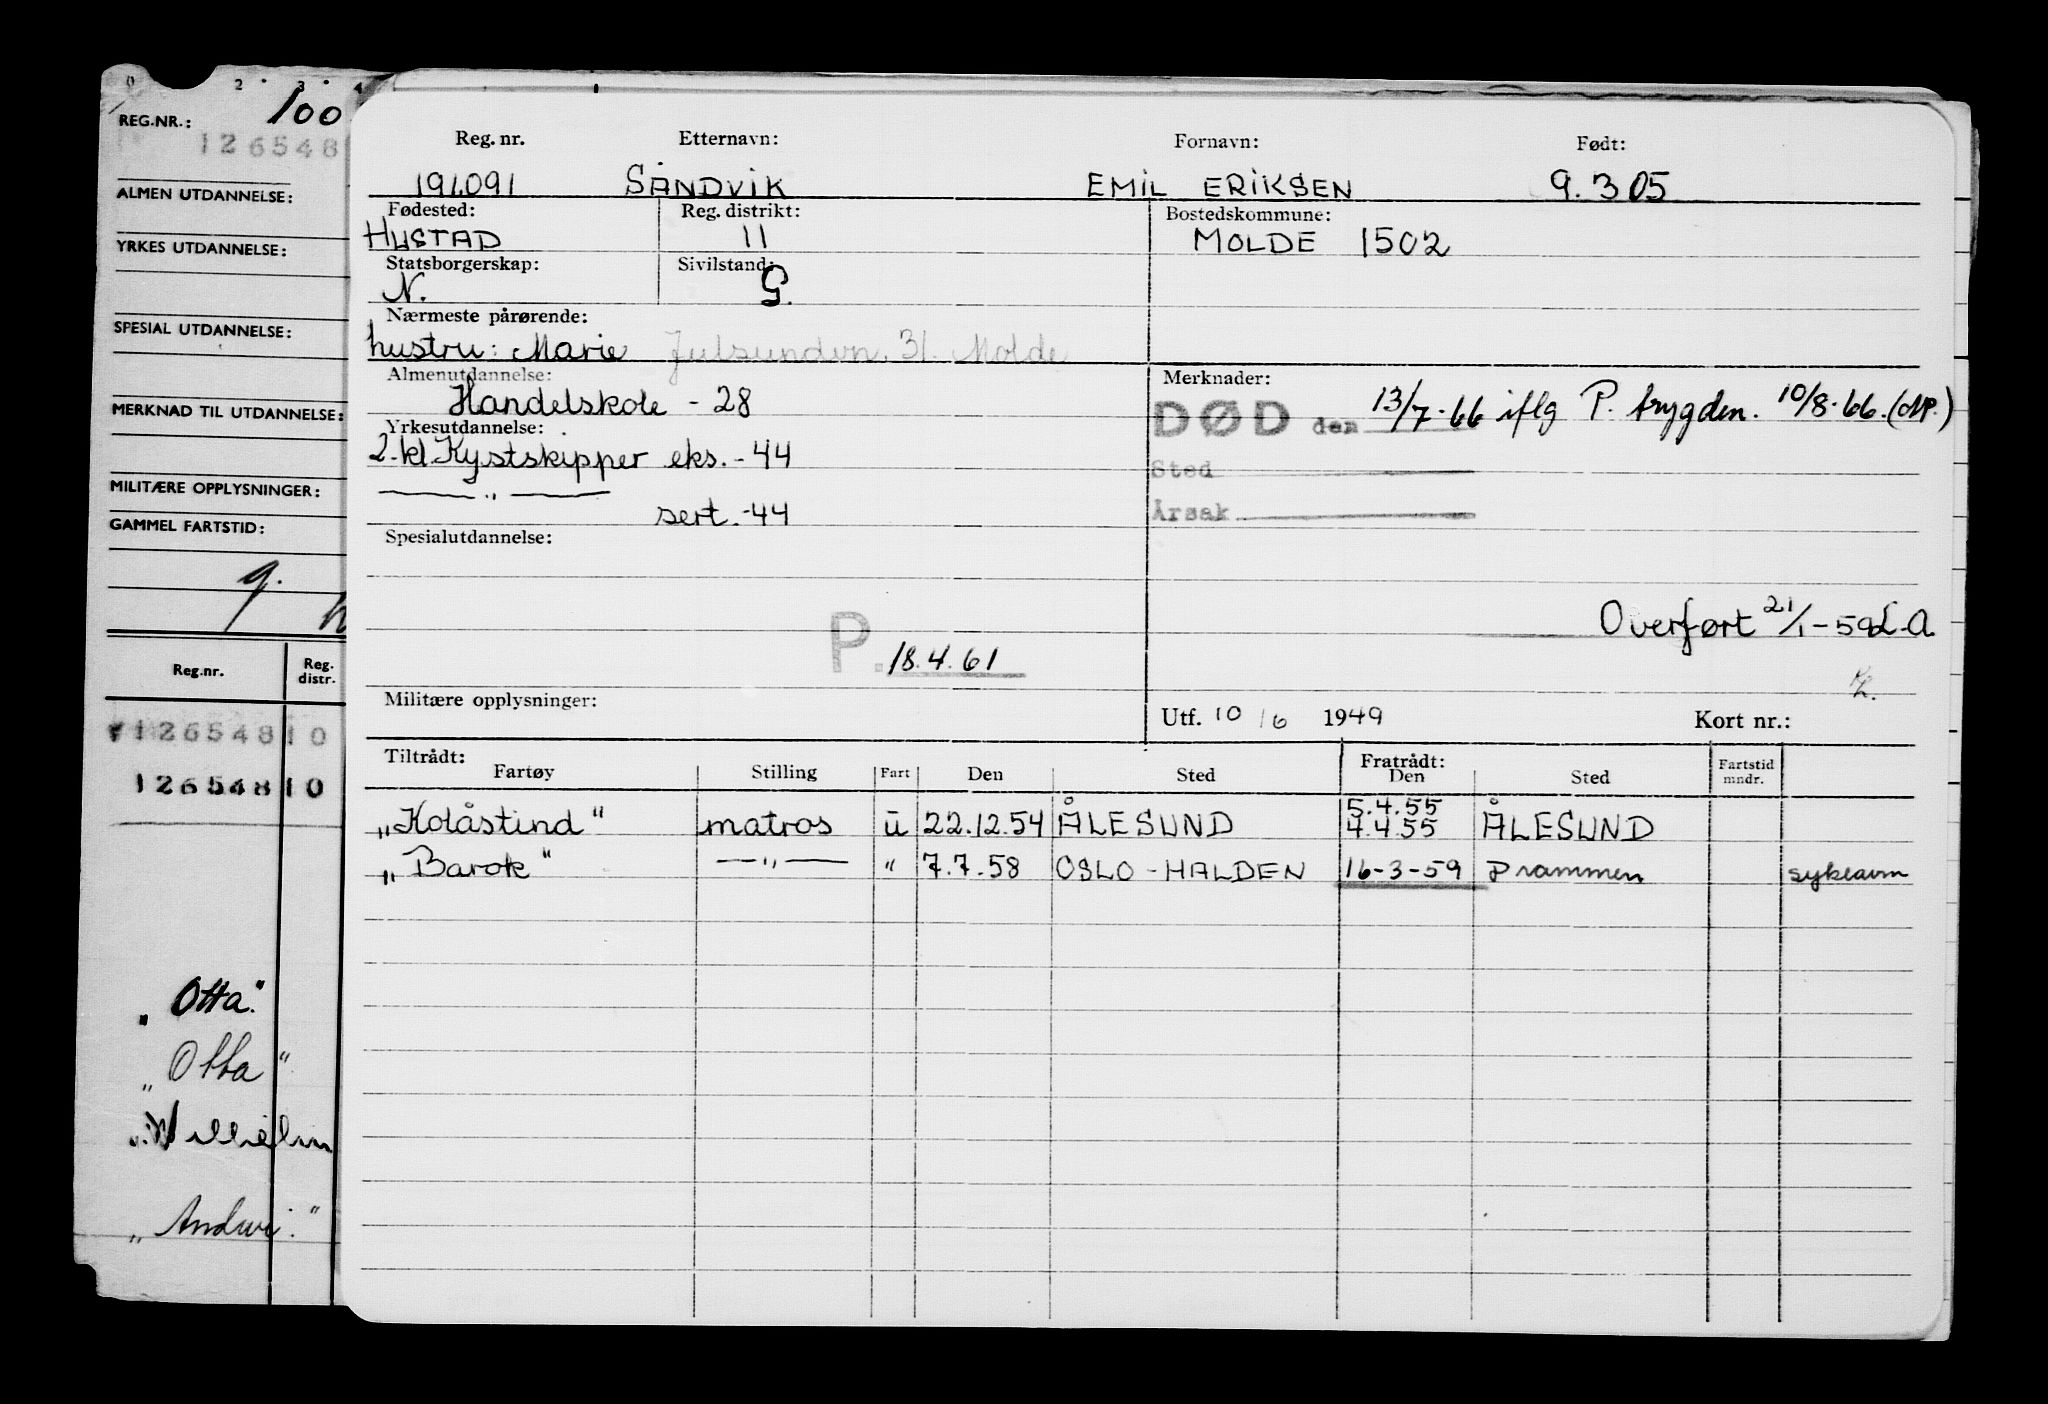 0 2 · 3 · 4
REG.NR.: 100
126548
ALMEN UTDANNELSE:
YRKES UTDANNELSE:
SPESIAL UTDANNELSE:
MERKNAD TIL UTDANNELSE:
MILITÆRE OPPLYSNINGER:
GAMMEL FARTSTID:
9.
Reg.nr. Reg. distr.
126548 10
126548 10
"Otta"
"Otta"
Reg. nr. Etternavn: Fornavn: Født:
191091 SANDVIK EMIL ERIKSEN 9.3 05
Fødested: Reg. distrikt: Bostedskommune:
HUSTAD 11 MOLDE 1502
Statsborgerskap: Sivilstand:
N. G.
Nærmeste pårørende:
hustru: Marie Julsundvn. 31. Molde
Almenutdannelse: Merknader:
Handelskole - 28 DØD den 13/7-66 iflg P. trygden. 10/8-66. (MP.)
Yrkesutdannelse:
2. kl. Kystskipper eks. - 44 Sted
— " — sert. - 44 Årsak
Spesialutdannelse:
Overført 21/1-59 L.A.
P. 18.4.61
Militære opplysninger: Utf. 10/6 1949 Kort nr.:
Tiltrådt: Fratrådt:
Fartøy Stilling Fart Den Sted Den Sted Fartstid mndr.
5.4.55
"Kolåstind" matros u 22.12.54 ÅLESUND 4.4.55 ÅLESUND
"Barok" — " — " 7.7.58 OSLO - HALDEN 16-3-59 Drammen sykeavm